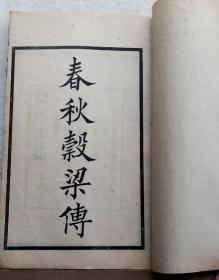 春秋穀梁傳